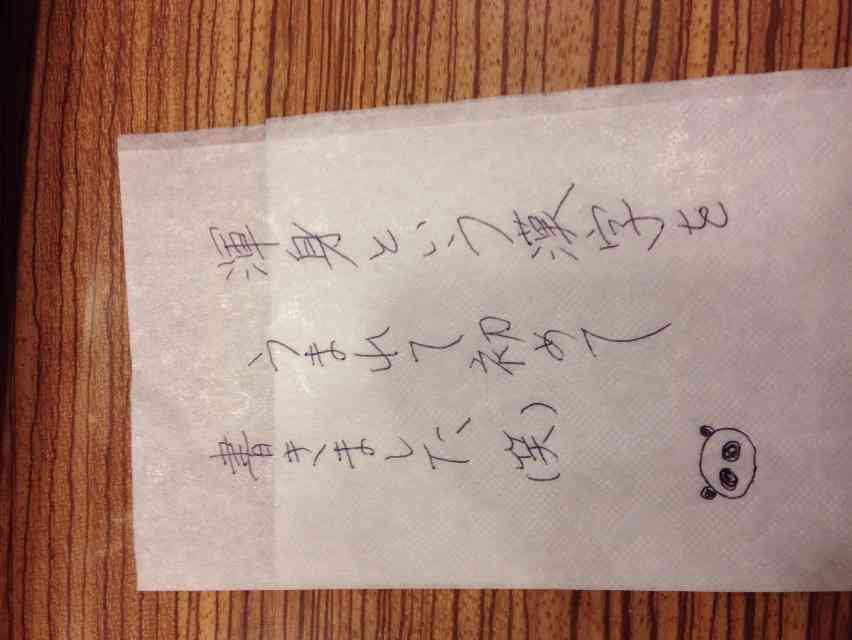 渾身という漢字を
うまれて初めて
書きました、(笑)